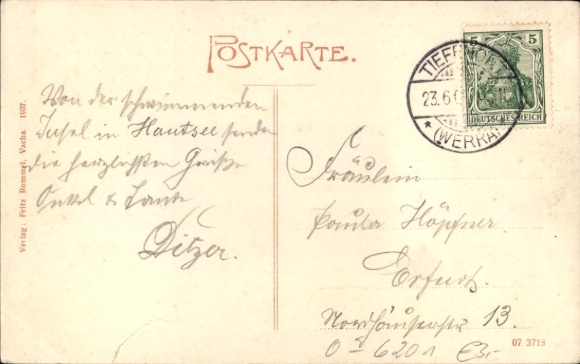 POSTKARTE.
5
DEUTSCHES REICH
TIEFENORT
23.6.0
* (WERRA)
Von der schwimmenden
Insel in Hautsee senden
die herzlichsten Grüße
Onkel & Tante
Ditzer.
Fräulein
Paula Höpfner
Erfurt.
Nordhäuserstr 13.
O-6201 E3,-
07 3718
Verlag: Fritz Rommel, Vacha. 1907.